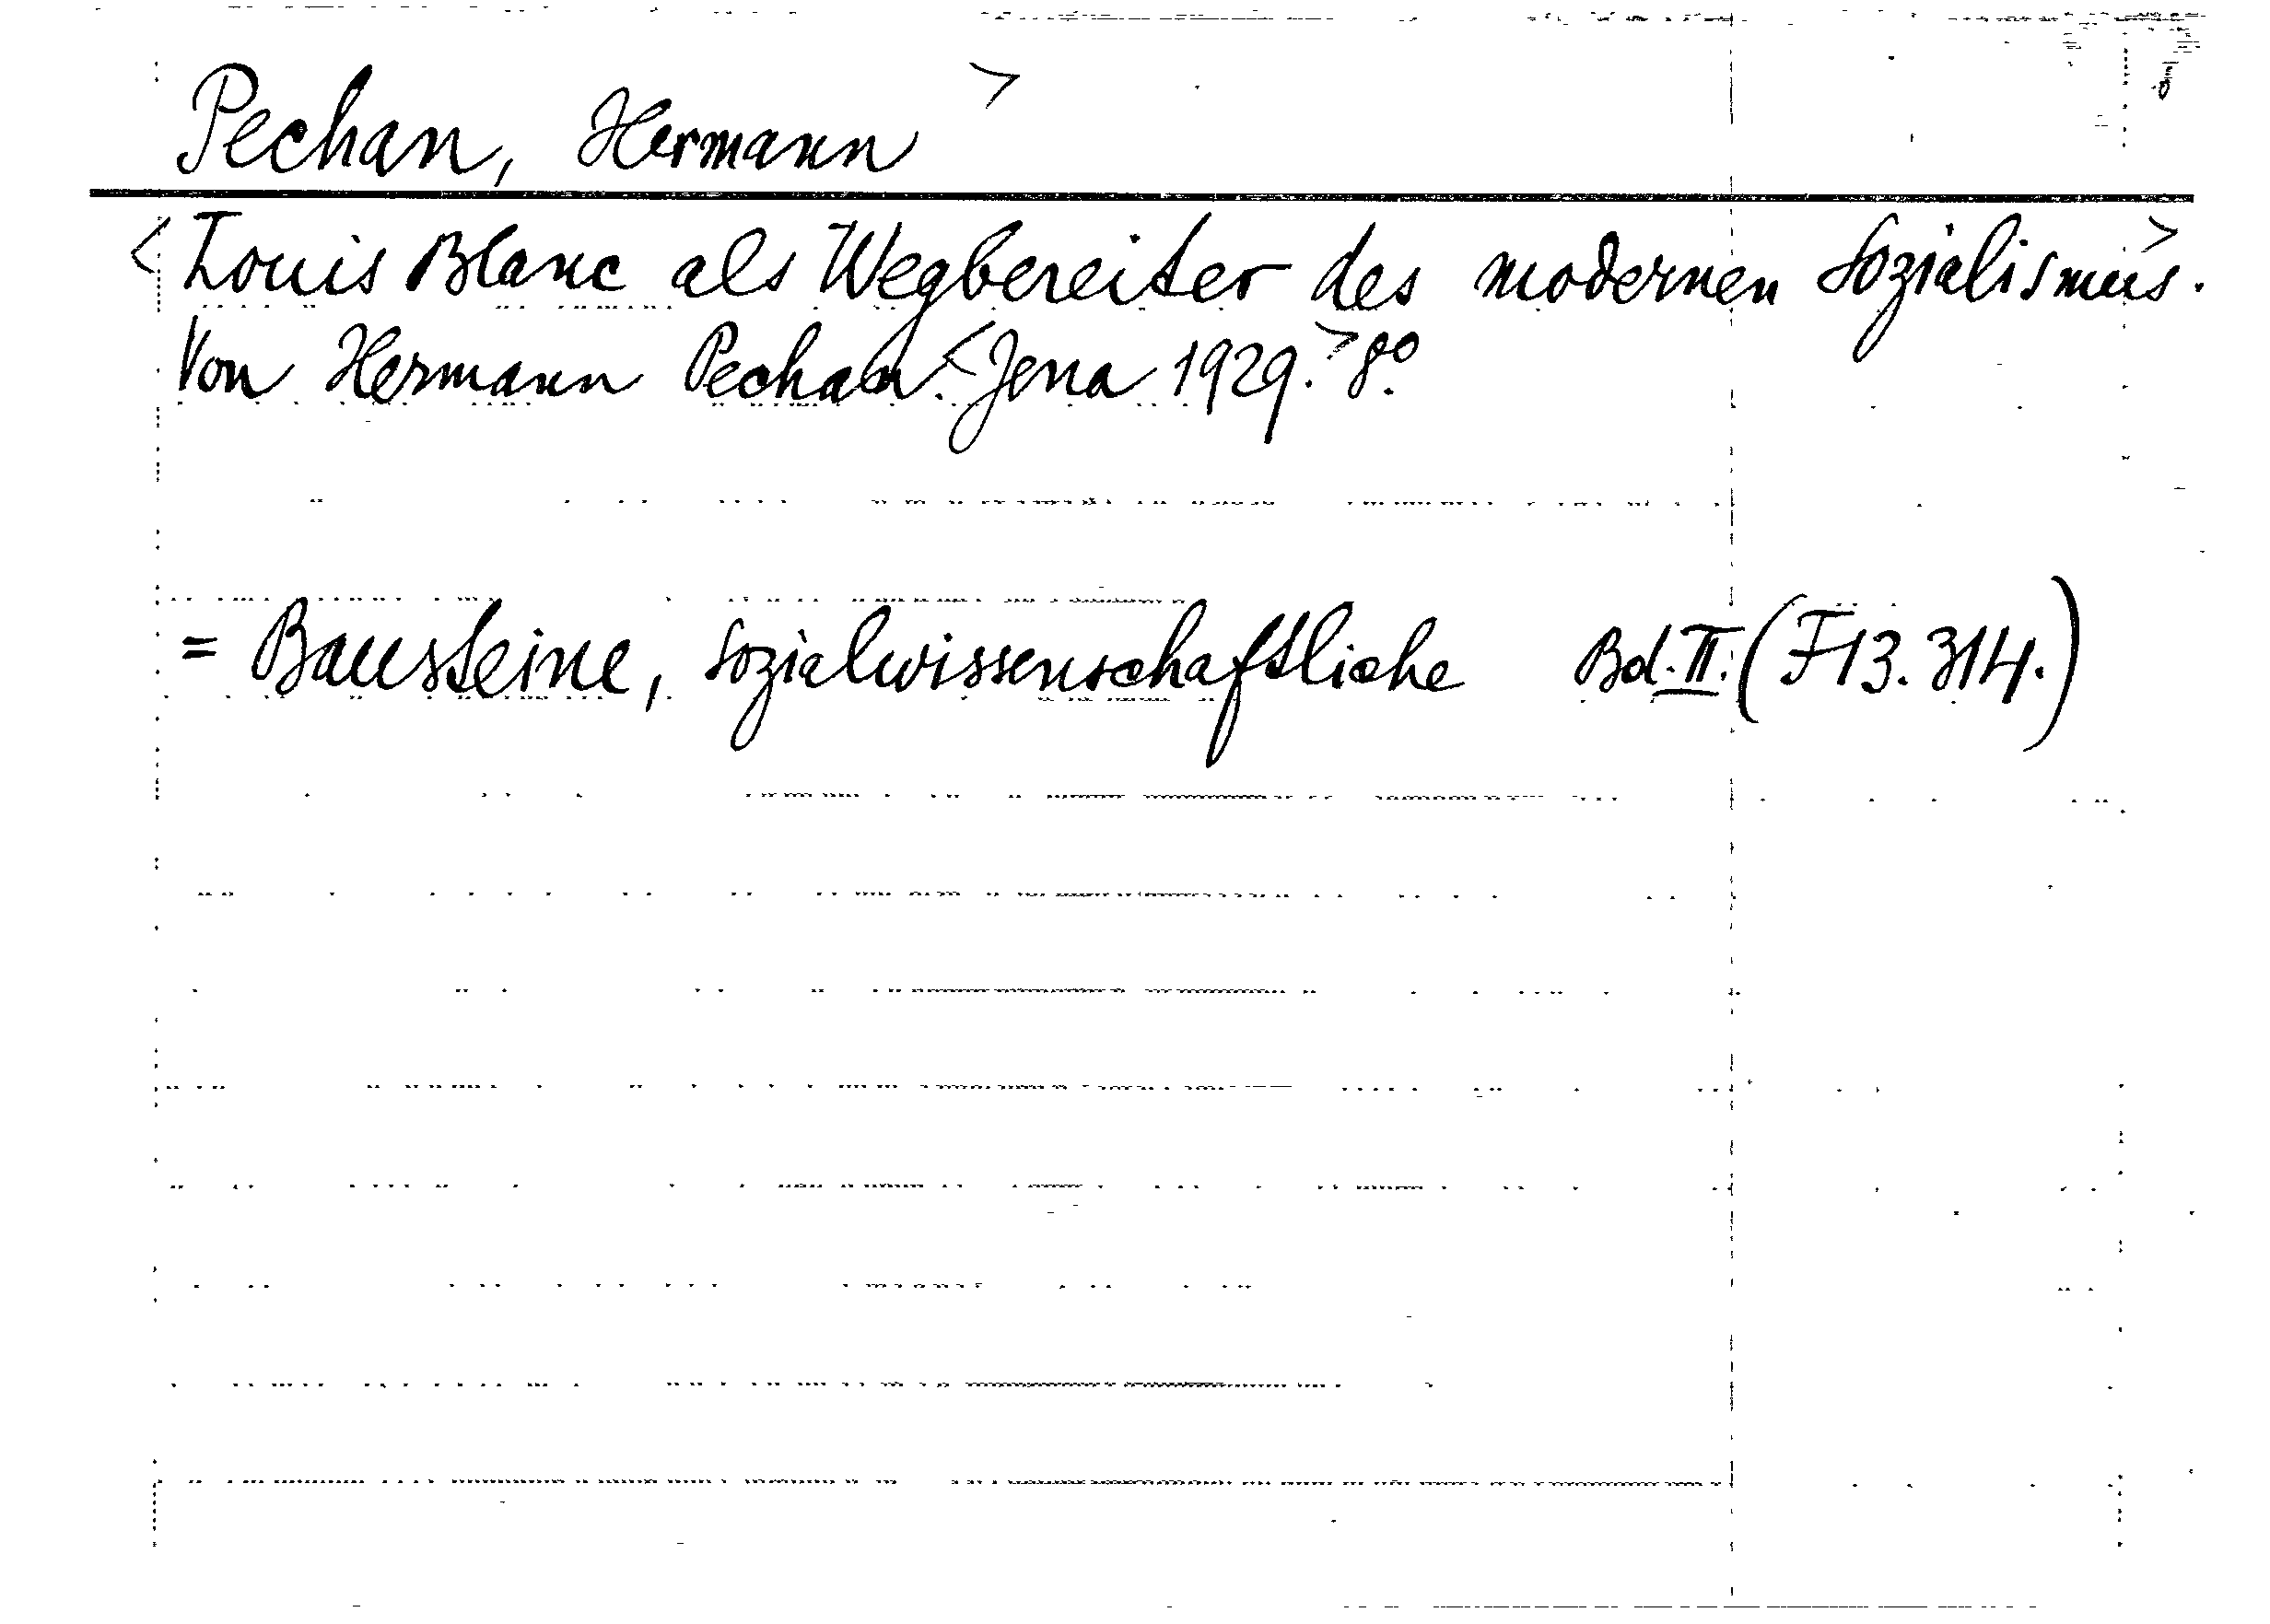 Pechan, Hermann >
<Louis Blanc als Wegbereiter des modernen Sozialismus>.
Von Hermann Pechan. <Jena 1929.> 8°.
= Bausteine, sozialwissenschaftliche Bd. II. (F 13. 314.)